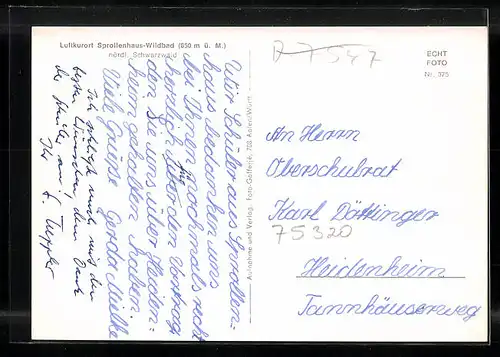 Luftkurort Sprollenhaus-Wildbad (650 m ü. M.)
nördl. Schwarzwald
R 7547
ECHT
FOTO
Nr. 375
Wir Schüler aus Sprollen-
haus bedanken uns
bei Ihnen nochmals recht
herzlich für den Vortrag
den Sie uns über Heiden-
heim gehalten haben.
Viele Grüße Gerda Mülke
Ich schließe mich mit den
besten Wünschen dem Dank
der Schüler an!
Ihr
Aufnahme und Verlag: Foto-Gaffenjé, 708 Aalen/Württ.
An Herrn
Oberschulrat
Karl Döttinger
75320
Heidenheim
Tannhäuserweg